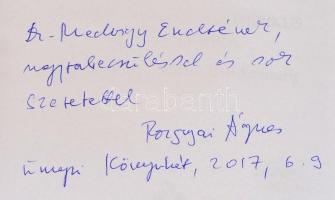 Dr. Medvigy Endrének,
nagyrabecsüléssel és sok
szeretettel
Pozsgai Ágnes
Ünnepi Könyvhét, 2017, 6. 9